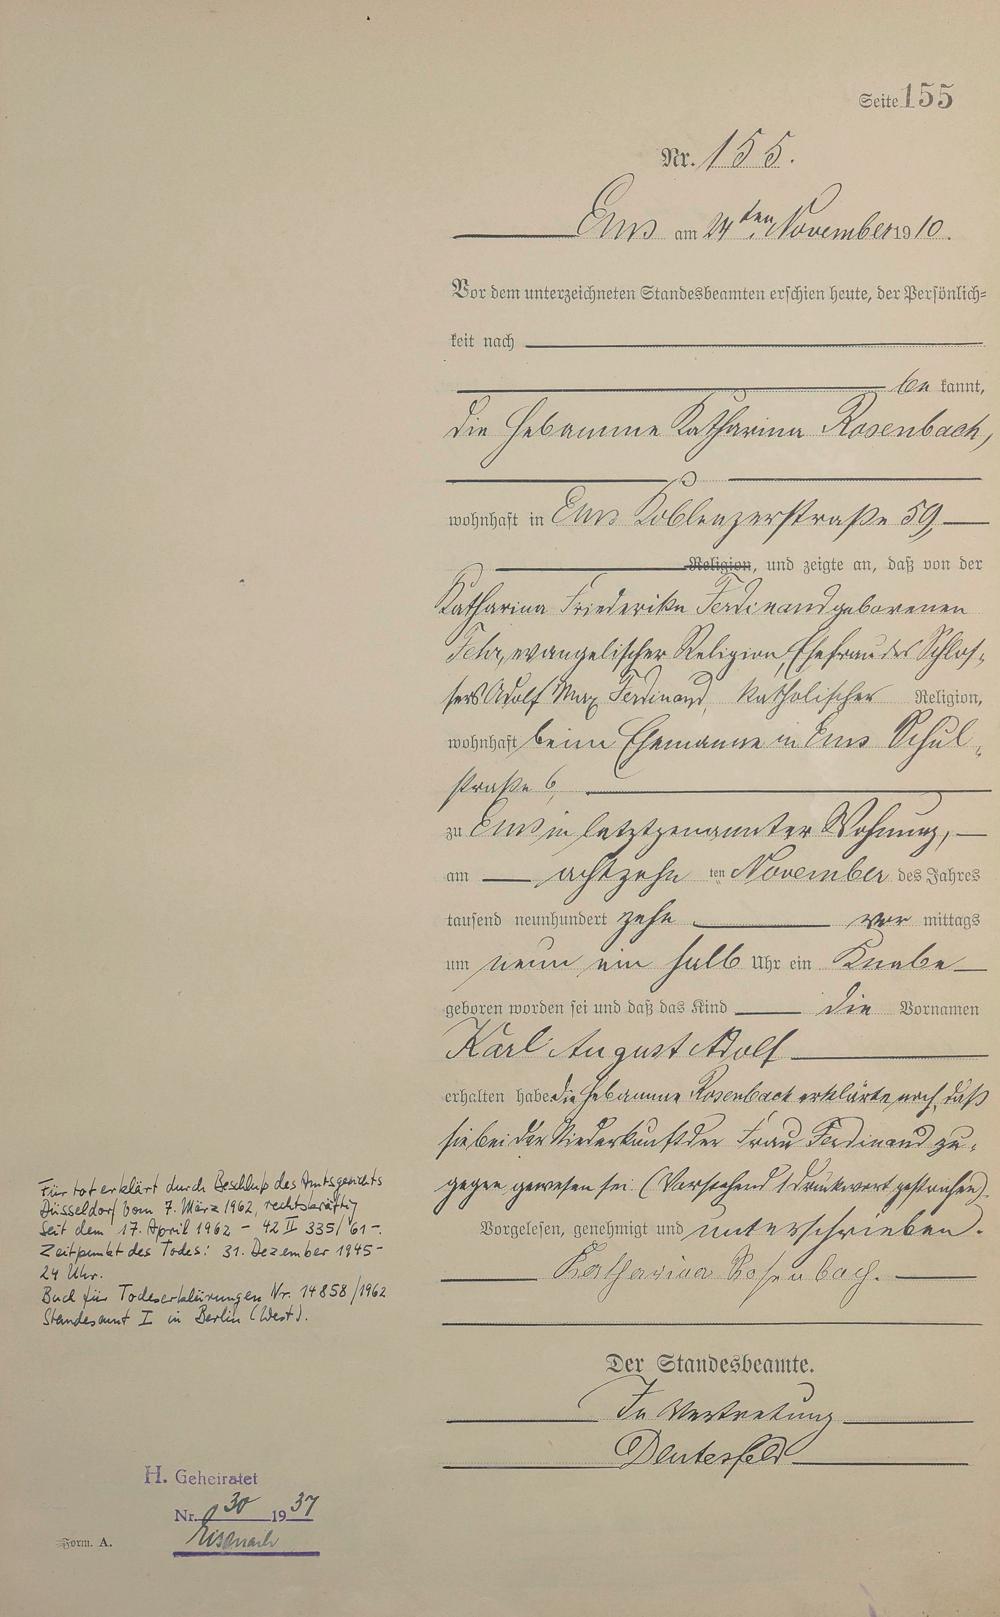 Seite 155
Nr. 155.
Ems am 24ten November 1910.
Vor dem unterzeichneten Standesbeamten erschien heute, der Persönlich=
keit nach
be kannt,
die Hebamme Katharina Rosenbach,
wohnhaft in Ems Koblenzerstraße 59,
Religion, und zeigte an, daß von der
Katharina Friederike Ferdinand geborenen
Fehr, evangelischer Religion, Ehefrau des Schlos-
sers Adolf Max Ferdinand, katholischer Religion,
wohnhaft beim Ehemanne in Ems Schul-
straße 6,
zu Ems in letztgenannter Wohnung,
am achtzehn ten November des Jahres
tausend neunhundert zehn vor mittags
um neun ein halb Uhr ein Knabe
geboren worden sei und daß das Kind die Vornamen
Karl August Adolf
erhalten habe die Hebamme Rosenbach erklärte noch, daß
sie bei der Niederkunft der Frau Ferdinand zu-
gegen gewesen sei. (Vorstehend 1 Druckwort gestrichen).
Vorgelesen, genehmigt und unterschrieben.
Katharina Rosenbach.
Der Standesbeamte.
In Vertretung
Für tot erklärt durch Beschluß des Amtsgerichts
Düsseldorf vom 7. März 1962, rechtskräftig
seit dem 17. April 1962 - 42 II 335/61-.
Zeitpunkt des Todes: 31. Dezember 1945-
24 Uhr.
Buch für Todeserklärungen Nr. 14858/1962
Standesamt I in Berlin (West).
H. Geheiratet
Nr. 30 1937
Eisenach
Form. A.